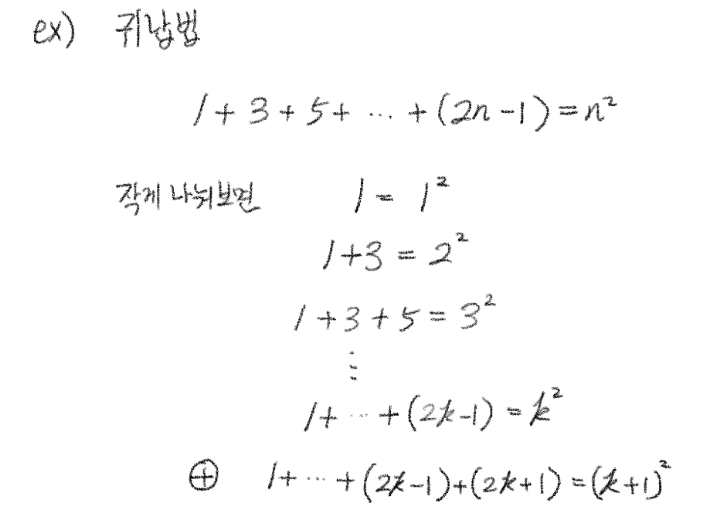 ex) 귀납법
1 + 3 + 5 + ⋯ + (2n-1) = n²
작게 나눠보면 1 = 1²
1+3 = 2²
1+3+5 = 3²
⋮
1+ ⋯ +(2k-1) = k²
⊕ 1+ ⋯ +(2k-1)+(2k+1) = (k+1)²